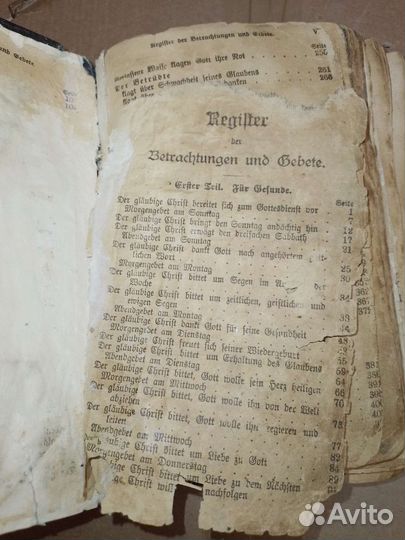 Register der Betrachtungen und Gebete. V
und Gebete.
Seite
Seite
Verlassene Waise klagen Gott ihre Not
Der Betrübte
klagt über Schwachheit seines Glaubens 261
Register
der
Betrachtungen und Gebete.
Erster Teil. Für Gesunde.
Seite
Der gläubige Christ bereitet sich zum Gottesdienst vor 1
Morgengebet am Sonntag 7
Der gläubige Christ bringt den Sonntag andächtig hin 12
Der gläubige Christ erwägt den dreifachen Sabbath 17
Abendgebet am Sonntag 21
Der gläubige Christ dankt Gott nach angehörtem
lichen Wort 25
Morgengebet am Montag 30
Der gläubige Christ bittet um Segen im
Woche 34
Der gläubige Christ bittet um zeitlichen, geistlichen und
ewigen Segen 38
Abendgebet am Montag 44
Der gläubige Christ dankt Gott für seine Gesundheit 48
Morgengebet am Dienstag
Der gläubige Christ freut sich seiner Wiedergeburt 55
Abendgebet am Dienstag 59
Der gläubige Christ bittet um Erhaltung des Glaubens 64
Der gläubige Christ bittet, Gott wolle sein Herz heiligen 66
Morgengebet am Mittwoch 70
Der gläubige Christ bittet, Gott wolle ihn von der Welt
abziehen
Der gläubige Christ bittet, Gott wolle ihn regieren und
leiten 77
Abendgebet am Mittwoch
gläubige Christ bittet um Liebe zu Gott 82
Morgengebet am Donnerstag 84
gläubige Christ bittet um Liebe zu dem Nächsten 89
Christ will nachfolgen
381
Avito